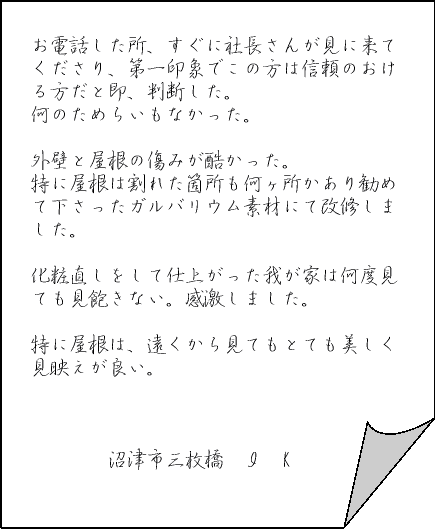 お電話した所、すぐに社長さんが見に来て
くださり、第一印象でこの方は信頼のおけ
る方だと即、判断した。
何のためらいもなかった。
外壁と屋根の傷みが酷かった。
特に屋根は割れた箇所も何ヶ所かあり勧め
て下さったガルバリウム素材にて改修しま
した。
化粧直しをして仕上がった我が家は何度見
ても見飽きない。感激しました。
特に屋根は、遠くから見てもとても美しく
見映えが良い。
沼津市三枚橋　I　K